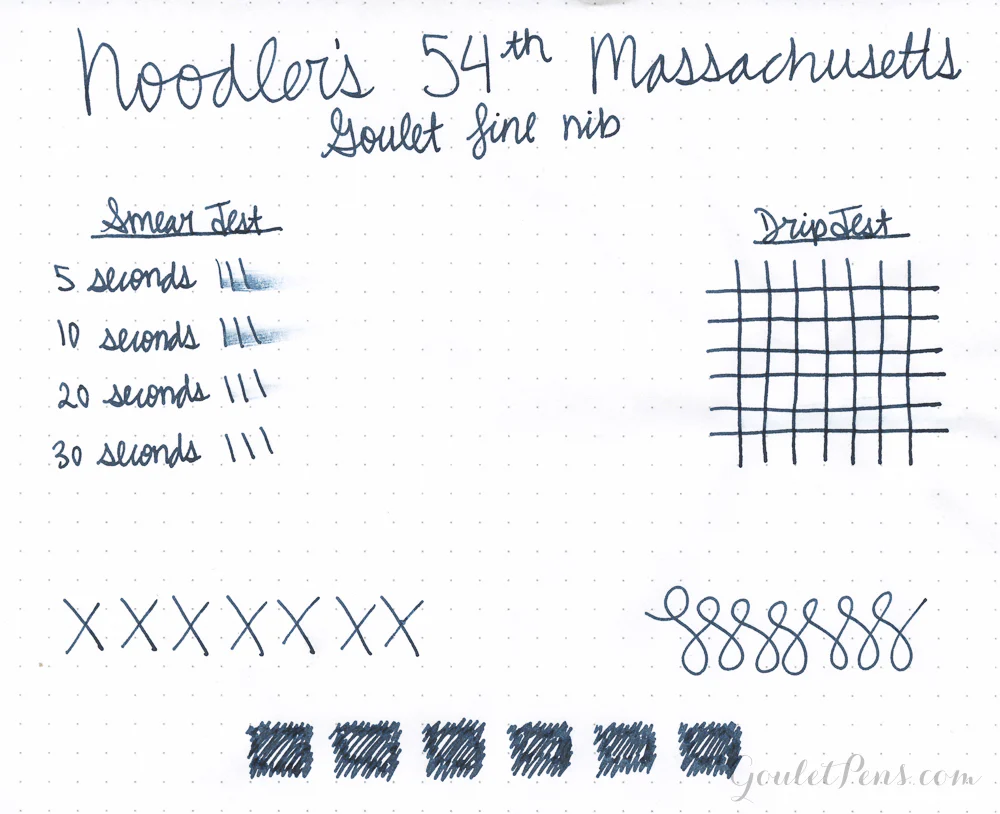 Noodler's 54th Massachusetts
Goulet fine nib
Smear Test
5 seconds
10 seconds
20 seconds
30 seconds
Drip Test
X X X X X X X
GouletPens.com